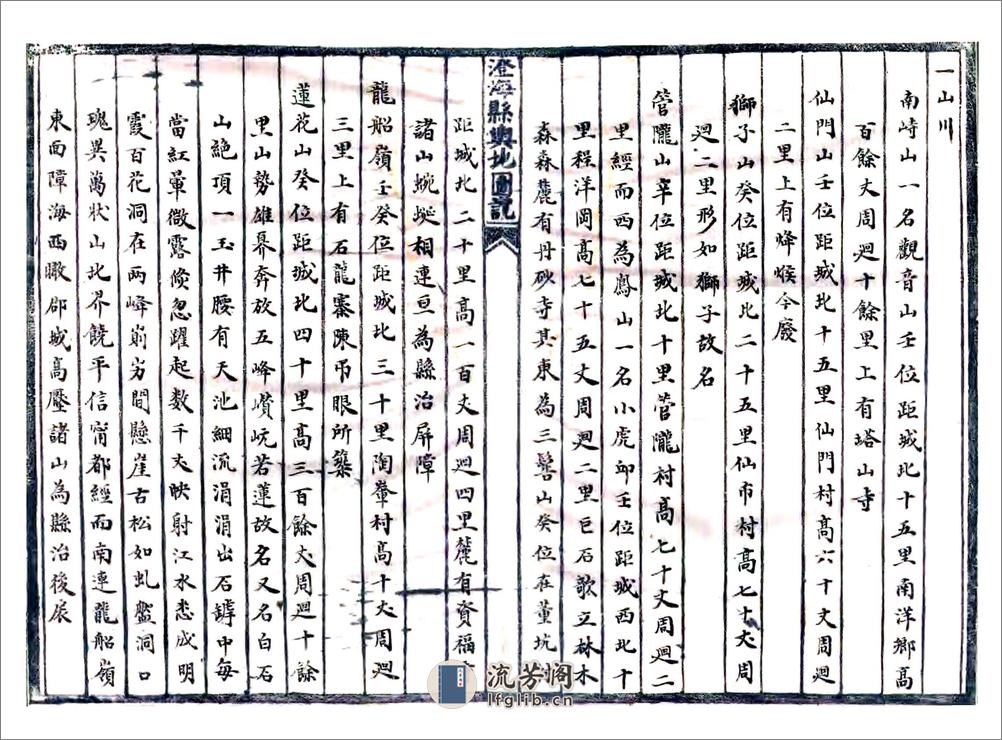 一山川
南峙山一名觀音山壬位距城北十五里南洋鄉高
百餘丈周廻十餘里上有塔山寺
仙門山壬位距城北十五里仙門村高六十丈周廻
二里上有烽堠今廢
獅子山癸位距城北二十五里仙市村高七十丈周
廻二里形如獅子故名
管隴山辛位距城北十里管隴村高七十丈周廻二
里經而西為鳳山一名小虎邱壬位距城西北十
里程洋岡高七十五丈周廻二里巨石欹立林木
森森麓有丹砂寺其東為三髻山癸位在董坑
澄海縣輿地圖說
距城北二十里高一百丈周廻四里麓有資福
諸山蜿蜒相連亘為縣治屏障
龍船嶺壬癸位距城北三十里陶輋村高十丈周廻
三里上有石龍寨陳吊眼所築
蓮花山癸位距城北四十里高三百餘丈周廻十餘
里山勢雄奔放五峰巑岏若蓮故名又名白石
山絶頂一玉井腰有天池細流涓涓出石罅中每
當紅暈微露倐忽躍起数千丈映射江水悉成明
霞百花洞在两峰崱屴間懸崖古松如虬盤洞口
瑰異萬狀山北界饒平信甯都經而南連龍船嶺
東面障海西瞰郡城高壓諸山為縣治後扆
流芳阁
lfglib.cn